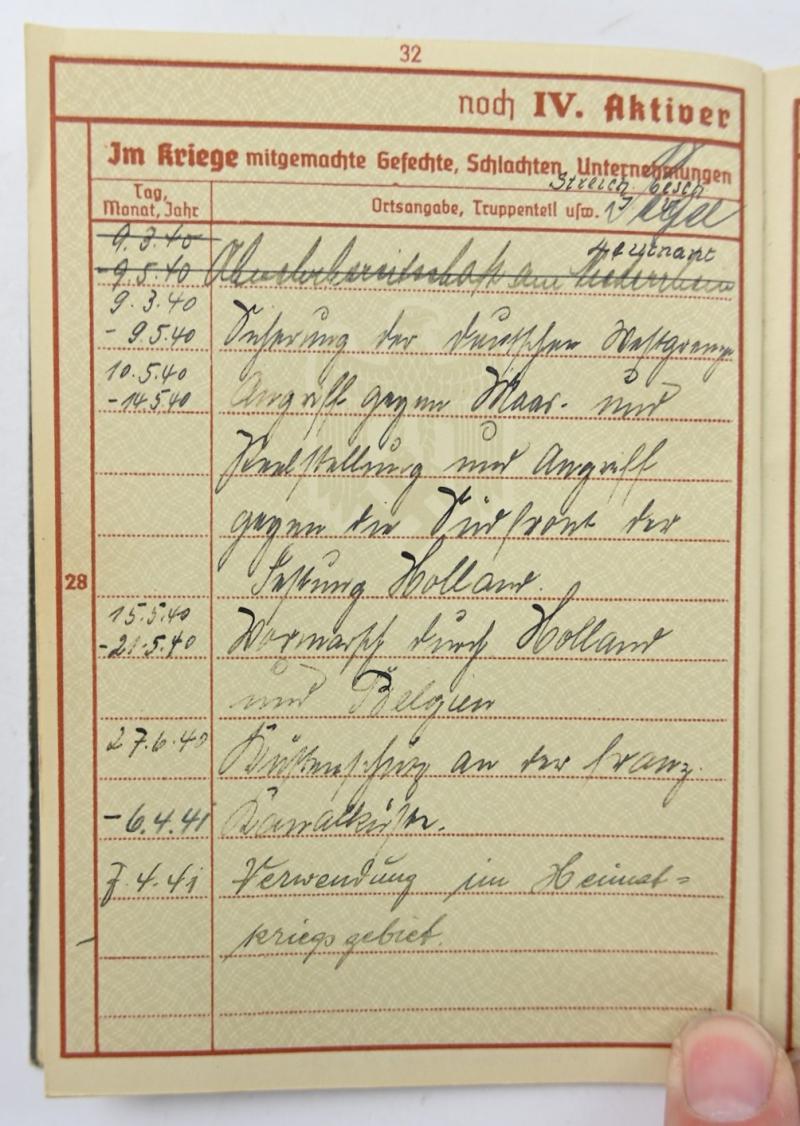 32
noch IV. Aktiver
Im Kriege mitgemachte Gefechte, Schlachten, Unternehmungen
Streich. besch
Tag,
Monat, Jahr
Ortsangabe, Truppenteil usw.
Leutnant
9.3.40
-9.5.40 am Niederrhein
9.3.40
- 9.5.40 Sicherung der deutschen Westgrenze
10.5.40
-14.5.40 Angriff gegen Maas- und
Peelstellung und Angriff
gegen die Südfront der
28 Festung Holland.
15.5.40
-21.5.40 Vormarsch durch Holland
und Belgien
27.6.40 Küstenschutz an der franz.
-6.4.41 Kanalküste.
7.4.41 Verwendung im Heimat=
- kriegsgebiet.